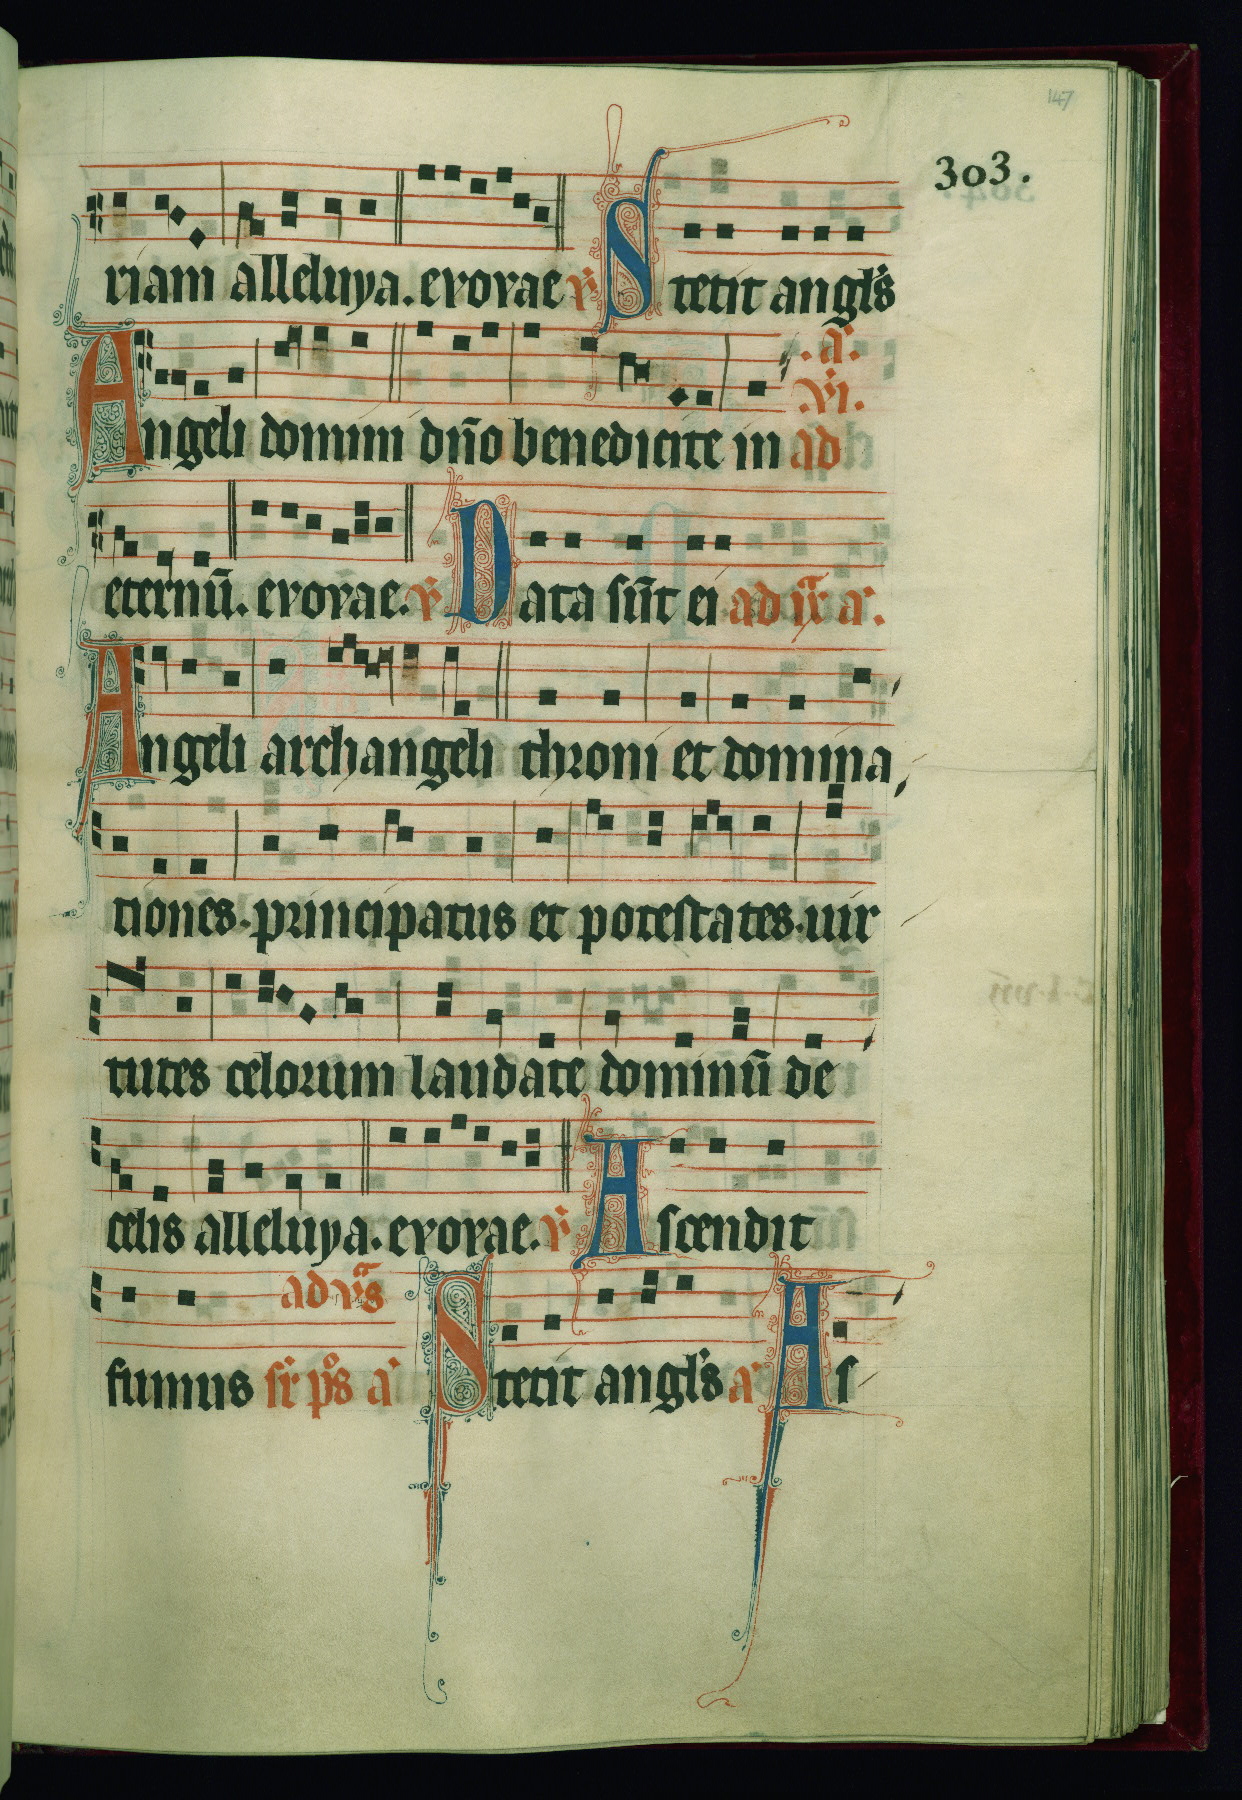 147
303.
riam alleluya. evovae ℣ Stetit angl's
.a͛.
Angeli domini dn̄o benedicite in ad
.vi.
eternū. evovae. ℣ Data sūt ei ad a͛.
Angeli archangeli throni et domina
tiones. principatus et potestates. uir
tutes celorum laudate dominū de
celis alleluya. evovae. ℣ Ascendit
ad
fumus a͛ Stetit angl's a͛ As